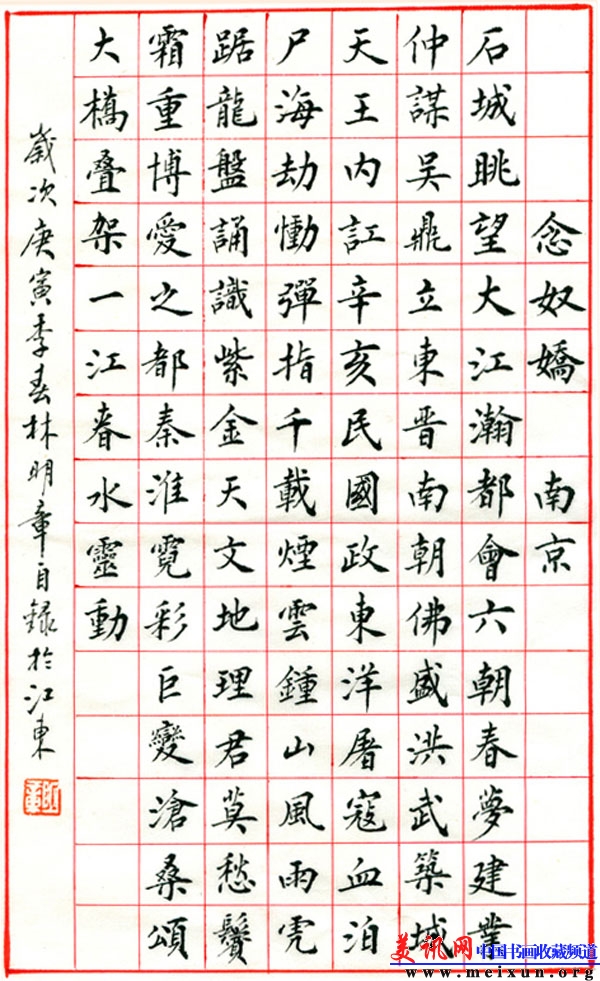 念奴嬌 南京
石城眺望大江瀚都會六朝春夢建業
仲謀吴鼎立東晋南朝佛盛洪武築城
天王内訌辛亥民國政東洋屠寇血泊
尸海劫慟彈指千載煙雲鍾山風雨虎
踞龍盤誦識紫金天文地理君莫愁鬢
霜重博愛之都秦淮霓彩巨變滄桑頌
大橋叠架一江春水靈動
歲次庚寅季春林明章自録於江東
美讯网 中国书画收藏频道
www.meixun.org